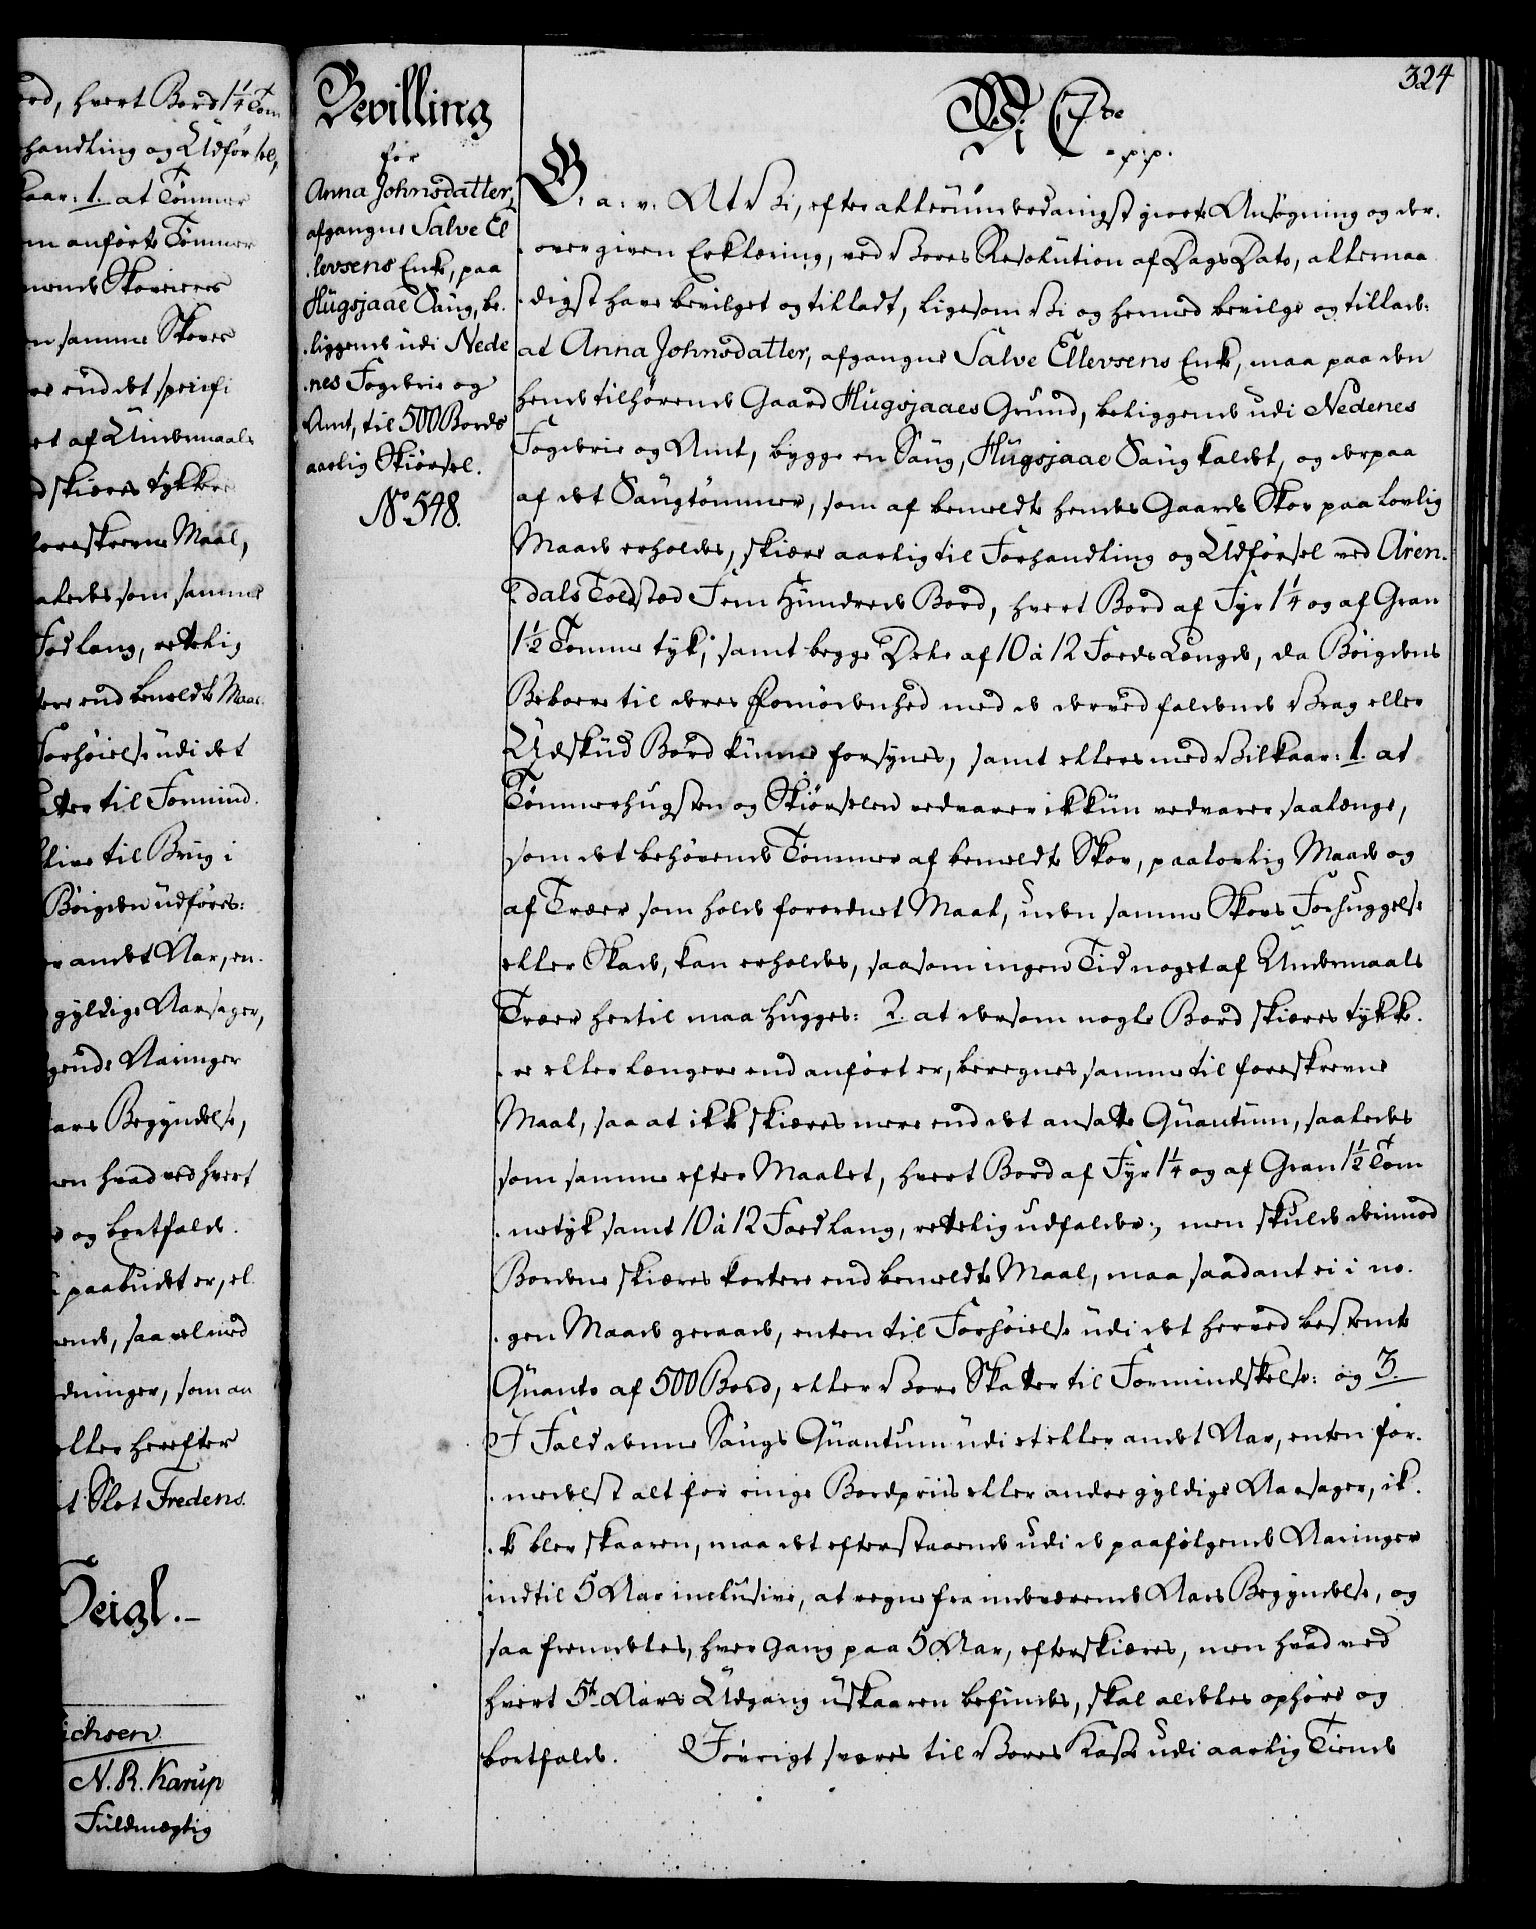 ord, hvert Bord 1 1/4 Tom
handling og Udførsel,
kaar: 1. at Tømmer
m anførte Tømmer
mende Skoveiere
n samme Skoves
re end det specifi
et af Undermaals
d skiæres tykkere
foreskrevne Maal,
aaledes som samme
Fod lang, rettelig
tere end bemeldte Maal
Forhøielse udi det
atter til Formind.
blive til Brug i
Bøigden udføres:
er andet Aar, en.
gyldige Aarsager,
gende Aaringer
Aars Begyndelse,
men hvad ved hvert
e og bortfalde.
paabudet er, el.
ende, saavel med
dninger, som an
eller herefter
et Slot Fredens.
Seigl.
ichsen
N. R. Karup
Fuldmægtig
324
Bevilling
for
Anna Johnsdatter,
afgangne Salve El
.levsens Enke, paa
Hugsjaae Saug, be.
.liggende udi Nede
.nes Fogderie og
Amt, til 500 Bords
aarlig Skiørsel.
No. 548.
Vi C 7de
.p.p.
G. a: v: At Vi, efter allerunderdanigst giorte Ansøgning og der.
.over given Erklæring, ved Vores Resolution af Dags Dato, allernaa
.digst have bevilget og tilladt, ligesom Vi og hermed bevilge og tillade:
at Anna Johnsdatter, afgangne Salve Ellevsens Enke, maa paa den
hende tilhørende Gaard Hugsjaaes Grund, beliggende udi Nedenes
Fogderie og Amt, bygge en Saug, Hugsjaae Saug kaldet, og derpaa
af det Saugtømmer, som af bemeldte hendes Gaards Skov paa lovlig
Maade erholdes, skiære aarlig til Forhandling og Udførsel ved Aren.
.dals Toldsted Fem Hundrede Bord, hvert Bord af Fyr 1 1/4 og af Gran
1 1/2 Tomme tyk, samt begge Dele af 10 à 12 Foeds Længde, da Bøigdens
Beboere til deres Fornødenhed med de derved faldende Vrag eller
Udskud Bord kunne forsynes, samt ellers med Vilkaar: 1. at
Tømmerhugsten og Skiørselen vedvarer ikkun vedvarer saalænge,
som det behøvende Tømmer af bemeldte Skov, paa lovlig Maade og
af Træer som holde forordnet Maal, uden samme Skovs Forhuggelse
eller Skade, kan erholdes, saasom ingen Tid noget af Undermaals
Træer hertil maa hugges: 2. at dersom nogle Bord skiæres tykke.
.re eller længere end anført er, beregnes samme til foreskrevne
Maal, saa at ikke skiæres mere end det ansatte Quantum, saaledes
som samme efter Maalet, hvert Bord af Fyr 1 1/4 og af Gran 1 1/2 Tom
.me tyk samt 10 à 12 Foed lang, rettelig udfalder, men skulde derimod
Bordene skiæres kortere end bemeldte Maal, maa saadant ei i no.
.gen Maade geraade, enten til Forhøielse udi det herved bestemte
Quanto af 500 Bord, eller Vore Skatter til Formindskelse: og 3.
I Fald denne Saugs Quantum udi et eller andet Aar, enten for.
.medelst alt for ringe Bordpriis eller andre gyldige Aarsager, ik.
.ke blev skaaren, maa det efterstaaende udi de paafølgende Aaringer
indtil 5 Aar inclusive, at regne fra indeværende Aars Begyndelse, og
saa fremdeles, hver Gang paa 5 Aar, efterskiæres, men hvad ved
hvert 5te Aars Udgang uskaaren befindes, skal aldeles ophøre og
bortfalde. Iøvrigt svares til Vores Kasse udi aarlig Tiende